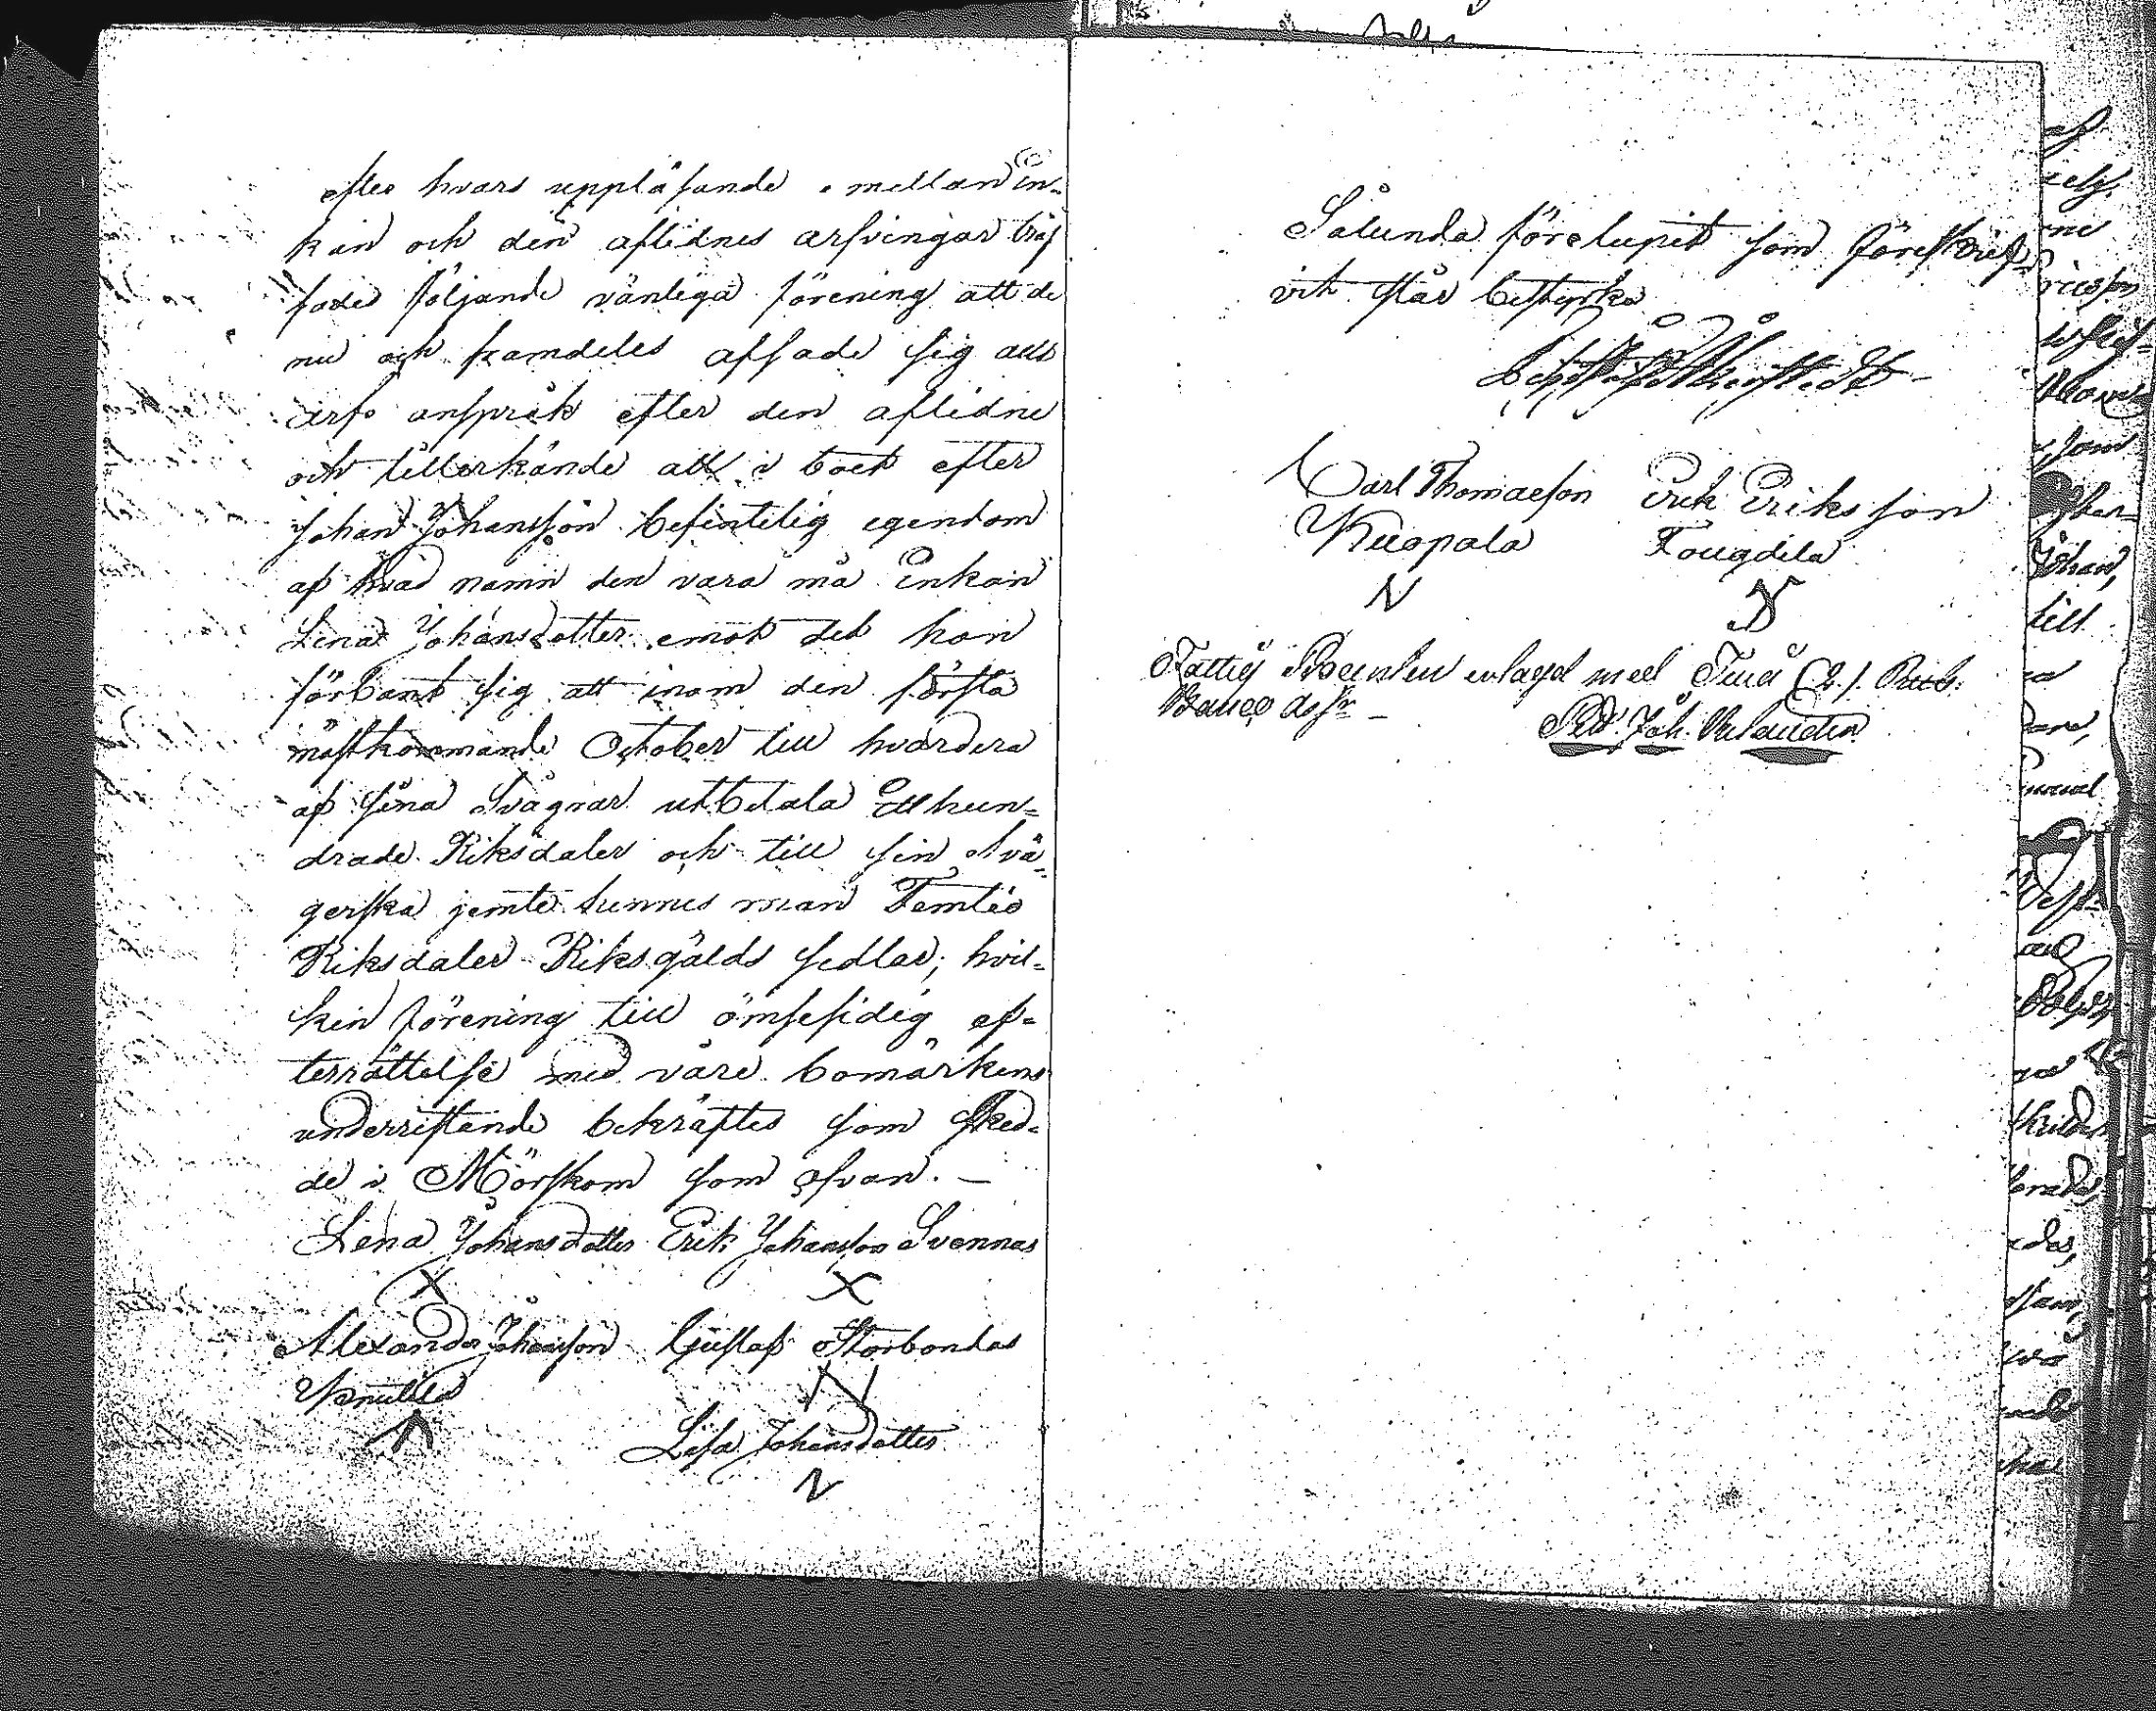 efter hvars uppläsande mellan En-
kan och den aflidnes arfvingar träf
fades följande vänliga förening att de
nu och framdeles afsade sig allt
arfs anspråk efter den aflidne
och tillerkände all i boet efter
Johan Johansson befintelig egendom
af hvad namn den vara må Enkan
Lena Johansdotter emot det hon
förbant sig att inom den första
nästkommande October till hvardera
af sina Svågrar utbetala Etthun-
drade Riksdaler och till sin Svä-
gerska jemte hennes man Femtio
Riksdaler Riksgälds sedlar; hvil-
ken förening till ömsesidig ef-
terrättelse med våre bomärkens
underrittande bekräftes som sked-
de i Mörskom som ofvan. —
Lena Johansdotter Erik Johansson Svennas
X X
Alexander Johansson Gustaf Storbondas
Lisa Johansdotter
N
Sålunda förelupit som föreskrif-
vit står bestyrka
Carl Thomasson Erik Eriksson
Kuopala
N
Fattig Procenten erlagd med Två (2) Rub.
Banco Ass.
Joh.